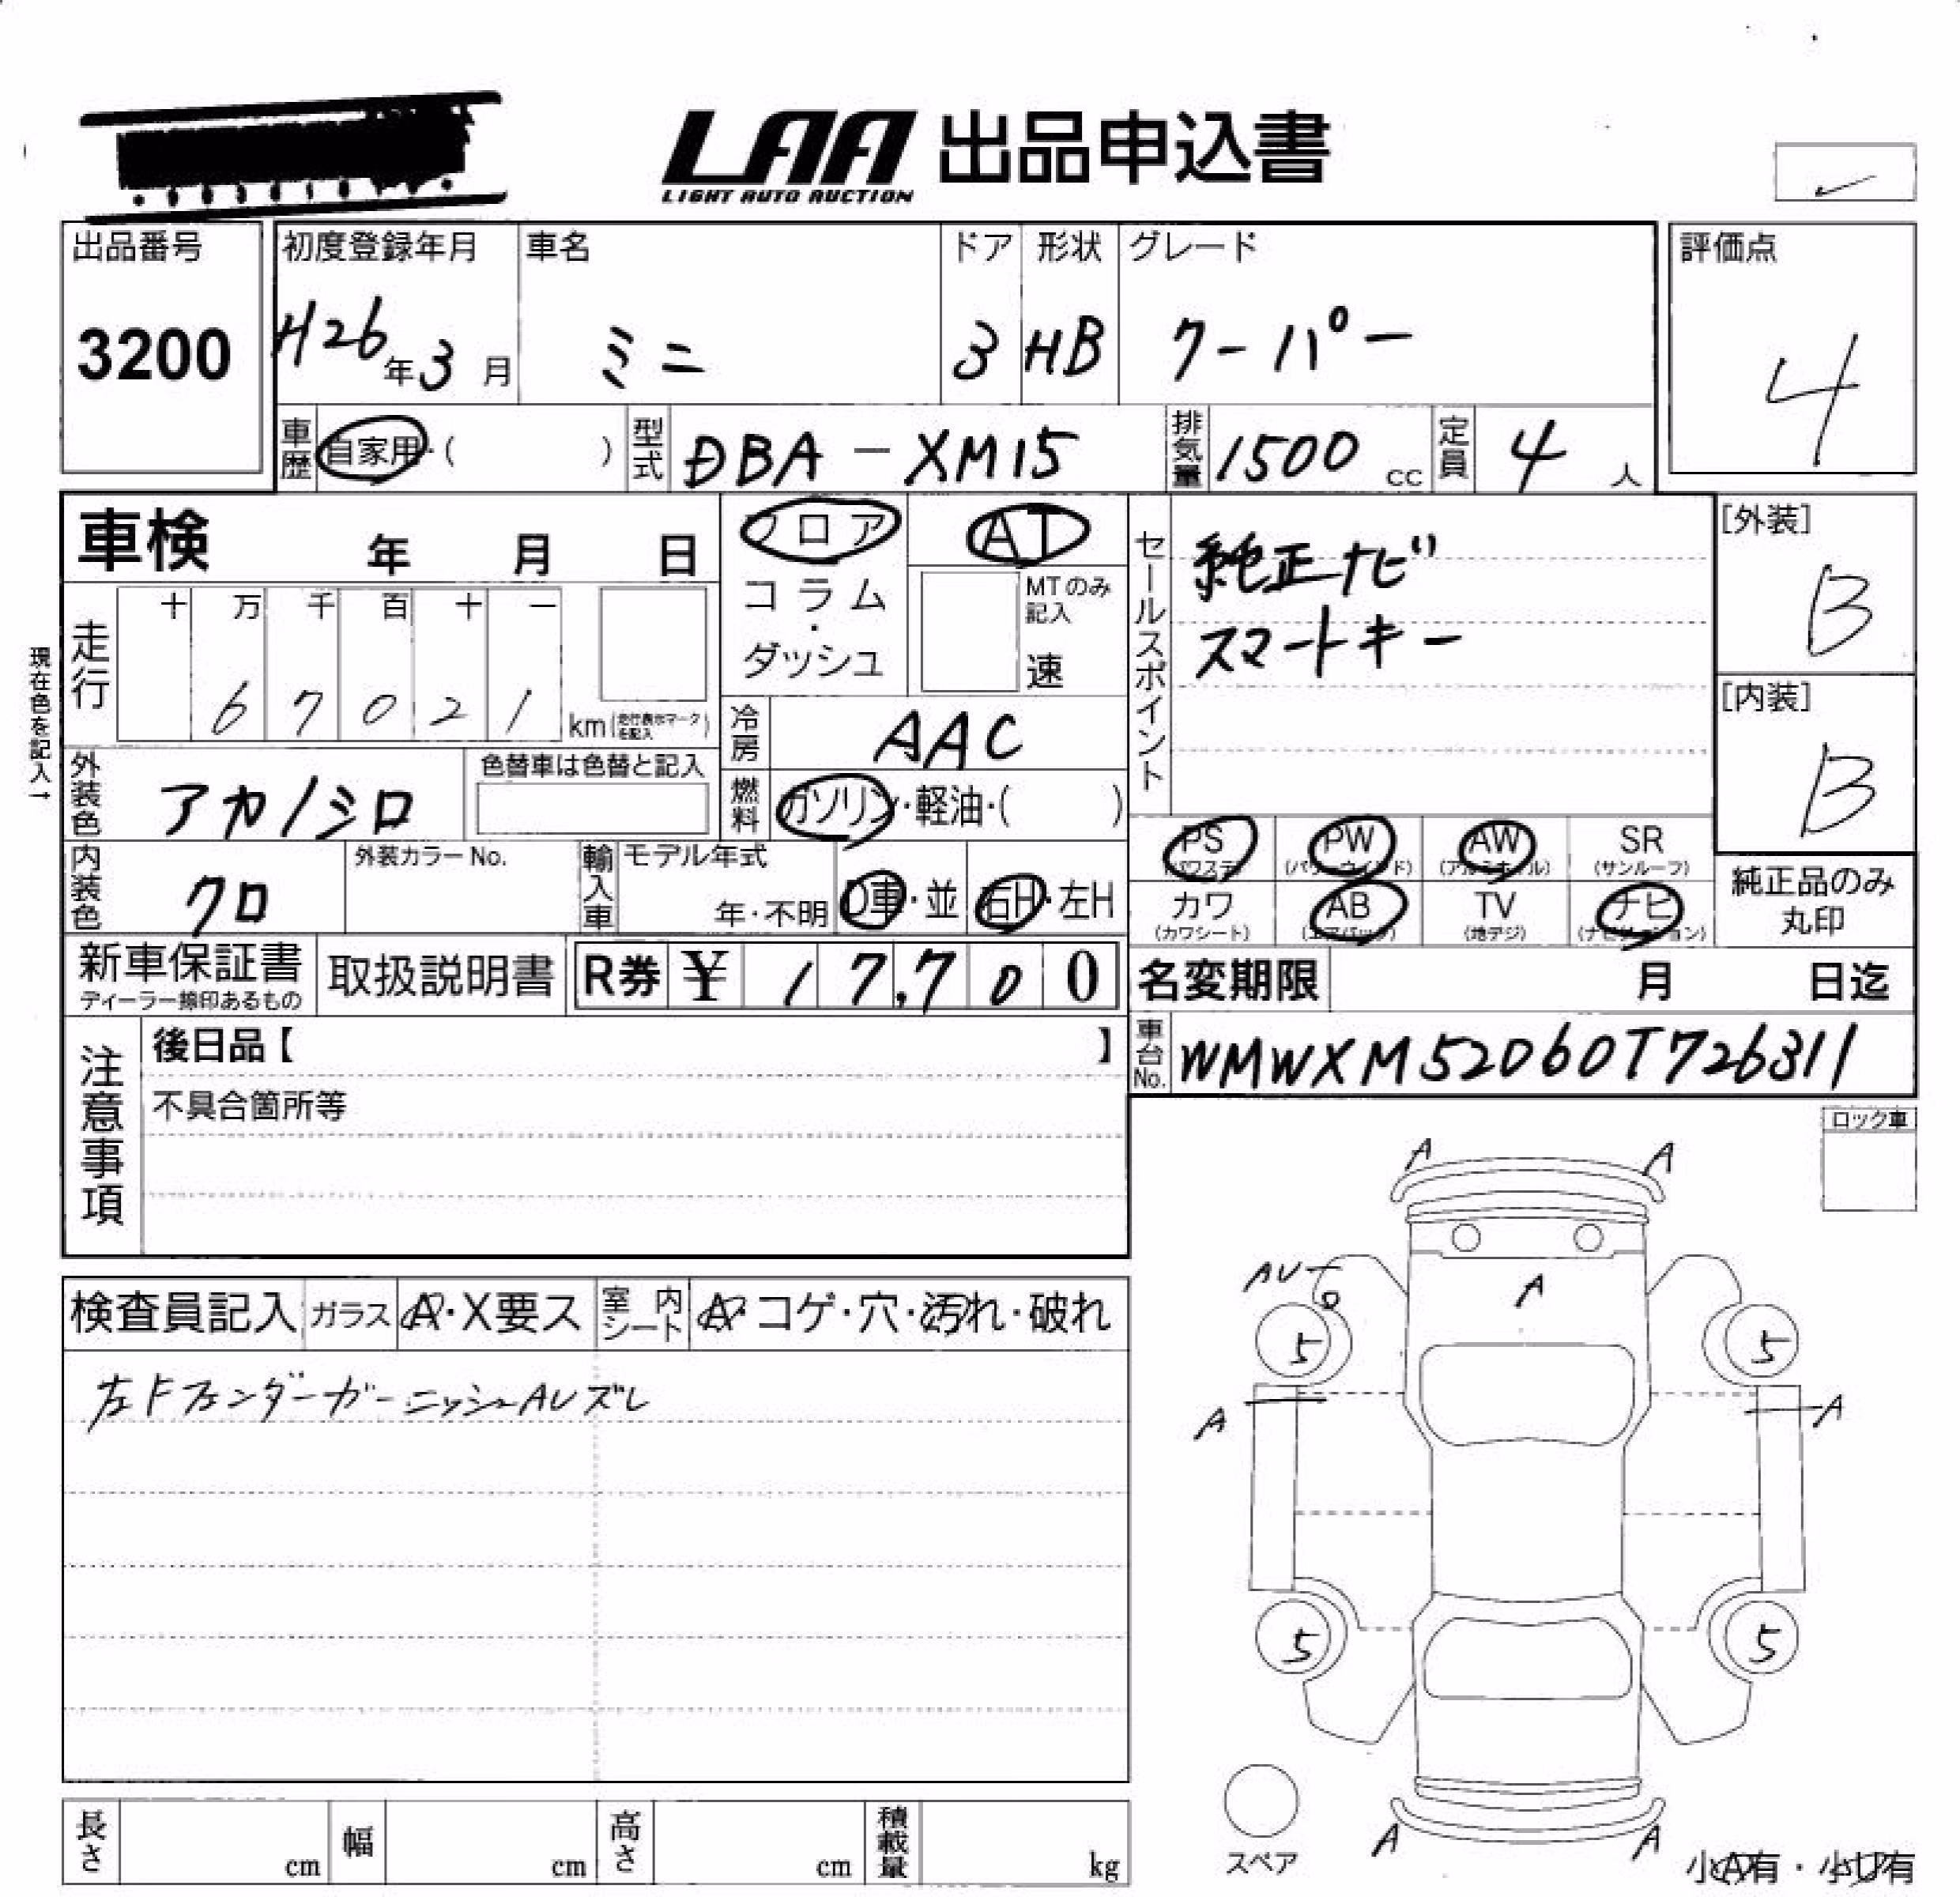 LAA 出品申込書
LIGHT AUTO AUCTION
出品番号
3200
初度登録年月
H26年3月
車名
ミニ
ドア
3
形状
HB
グレード
クーパー
評価点
4
車歴
自家用・( )
型式
DBA-XM15
排気量
1500 cc
定員
4 人
車検 年 月 日
フロア
コラム
・
ダッシュ
AT
MTのみ
記入
速
セールスポイント
純正ナビ
スマートキー
[外装]
B
[内装]
B
現在色を記入→
走行
十 万 千 百 十 一
6 7 0 2 1 km(走行表示マークを記入)
冷房
AAC
外装色
アカ/シロ
色替車は色替と記入
燃料
ガソリン・軽油・( )
PS
(パワステ)
PW
(パワーウインド)
AW
(アルミホイル)
SR
(サンルーフ)
カワ
(カワシート)
AB
(エアバック)
TV
(地デジ)
ナビ
(ナビゲーション)
純正品のみ
丸印
内装色
クロ
外装カラーNo.
輸入車
モデル年式
年・不明
D車・並
右H・左H
新車保証書
ディーラー捺印あるもの
取扱説明書
R券 ¥ 1 7,7 0 0
名変期限 月 日迄
車台No.
WMWXM52060T726311
注意事項
後日品【 】
不具合箇所等
ロック車
検査員記入
ガラス
A・X要ス
室内シート
A・コゲ・穴・汚れ・破れ
左Fフェンダーガーニッシュ AU ズレ
A A
AU
A
5 5
A A
5 5
スペア
A A
小A有・小U有
長さ cm
幅 cm
高さ cm
積載量 kg